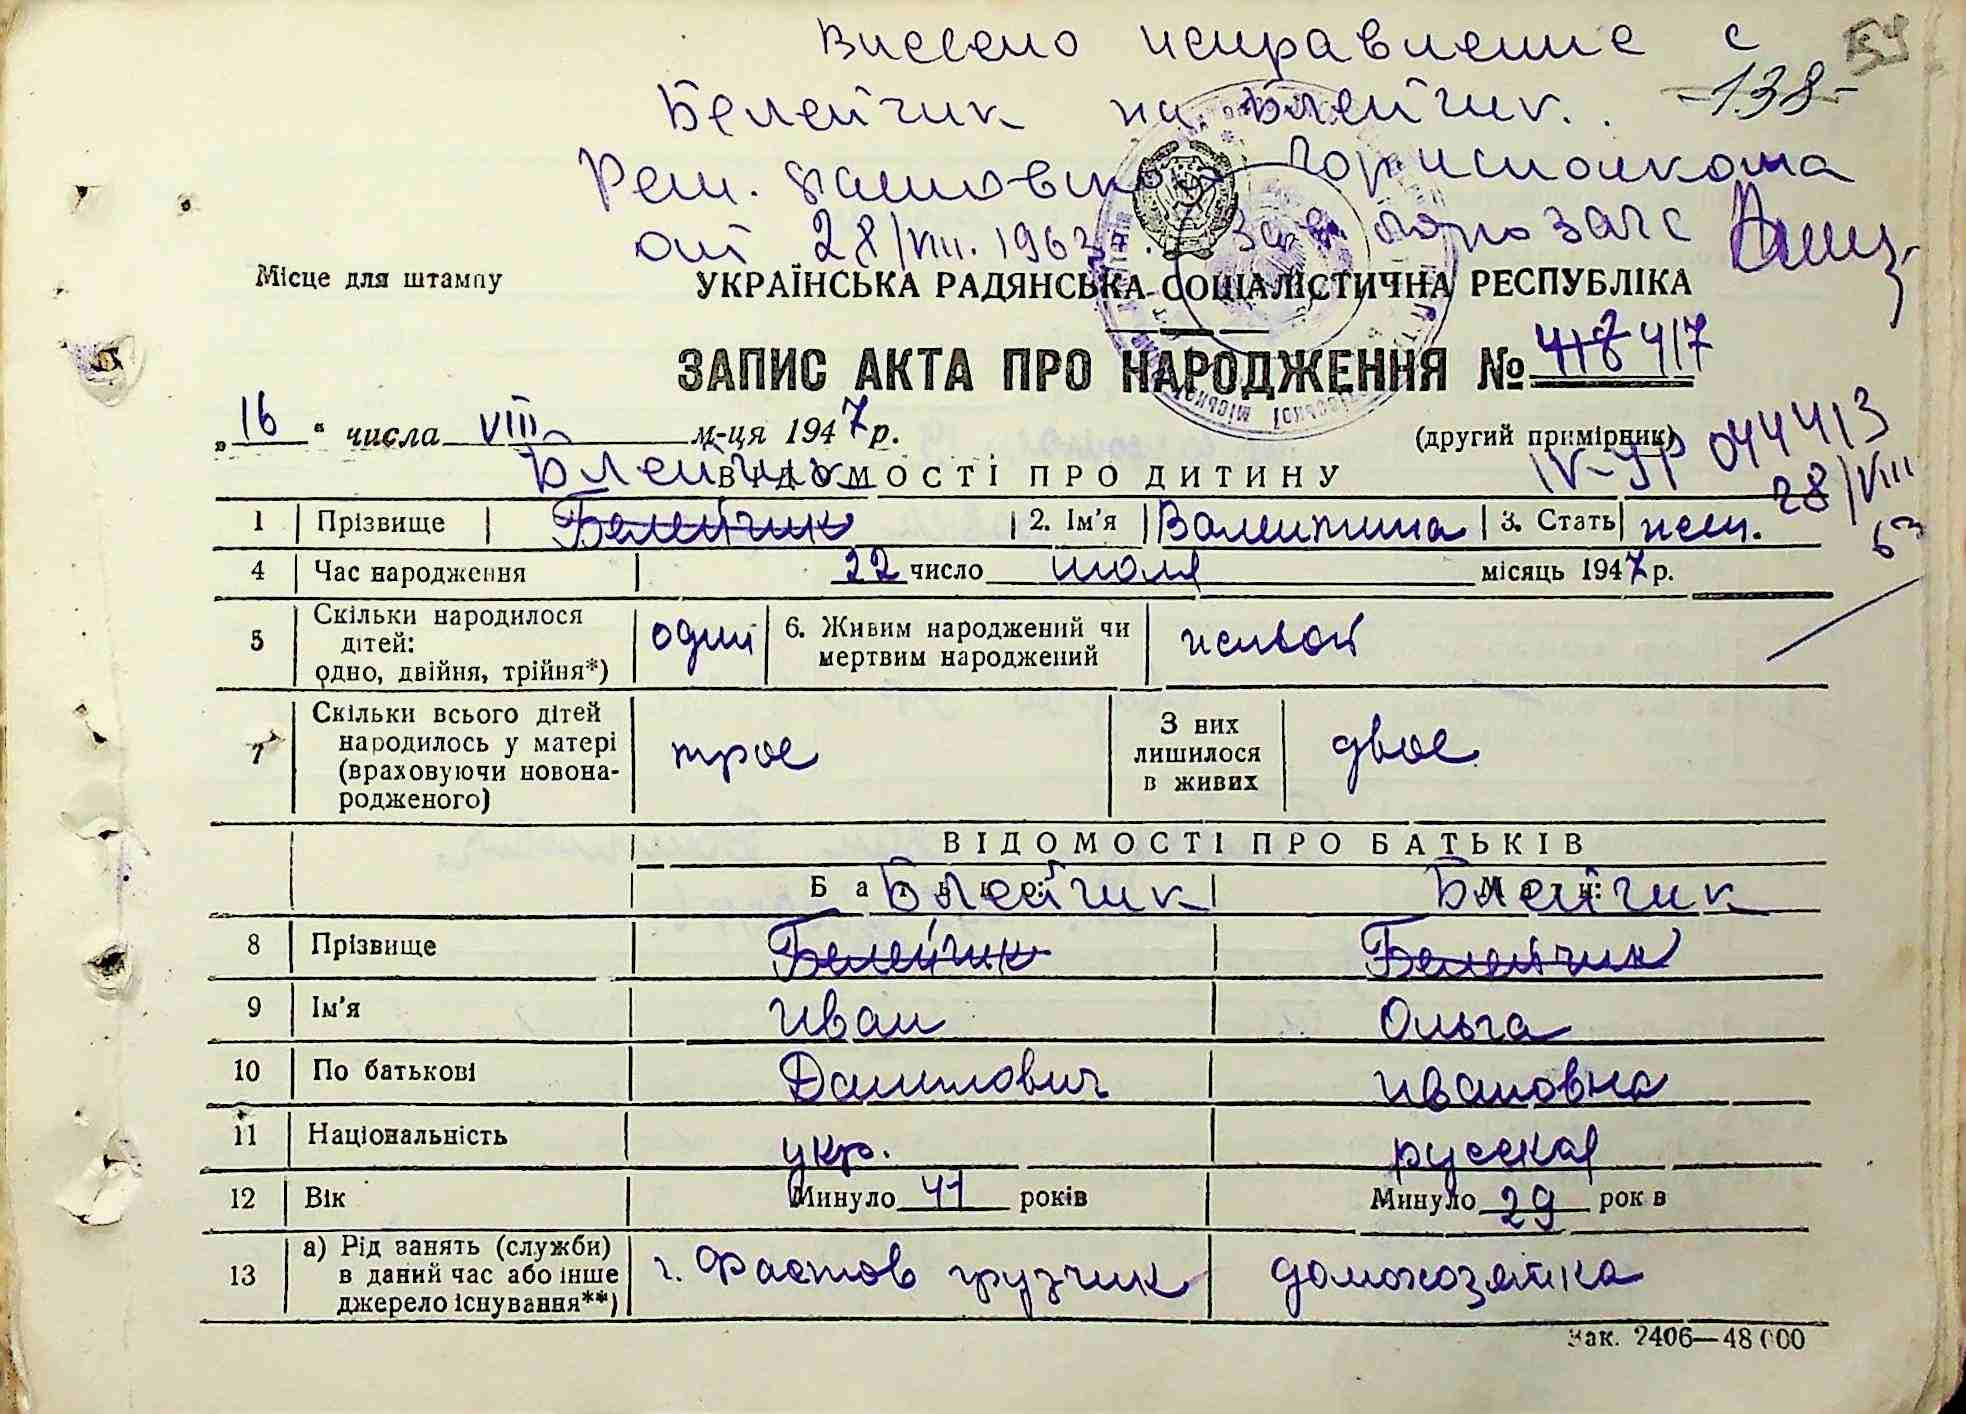 Внесено исправление с
Белейчик на Блейчик.
-138-
Реш. Фастовского Горисполкома
от 28/VIII. 1963 г. Зав. горзагс
Місце для штампу
УКРАЇНСЬКА РАДЯНСЬКА СОЦІАЛІСТИЧНА РЕСПУБЛІКА
ЗАПИС АКТА ПРО НАРОДЖЕННЯ № 418 417
„16“ числа VIII м-ця 1947 р.
(другий примірник)
IV-УР 044413
28/VIII
63
Блейчик
ВІДОМОСТІ ПРО ДИТИНУ
1 Прізвище Белейчик 2. Ім'я Валентина 3. Стать жен.
4 Час народження 22 число июля місяць 1947 р.
5 Скільки народилося дітей: одно, двійня, трійня*) один 6. Живим народжений чи мертвим народжений живой
7 Скільки всього дітей народилось у матері (враховуючи новонародженого) трое З них лишилося в живих двое
ВІДОМОСТІ ПРО БАТЬКІВ
Батько: Блейчик Мати: Блейчик
8 Прізвище Белейчик Белейчик
9 Ім'я Иван Ольга
10 По батькові Данилович Ивановна
11 Національність укр. русская
12 Вік Минуло 41 років Минуло 29 рок в
13 а) Рід занять (служби) в даний час або інше джерело існування**) г. Фастов грузчик домохозяйка
Зак. 2406—48 000